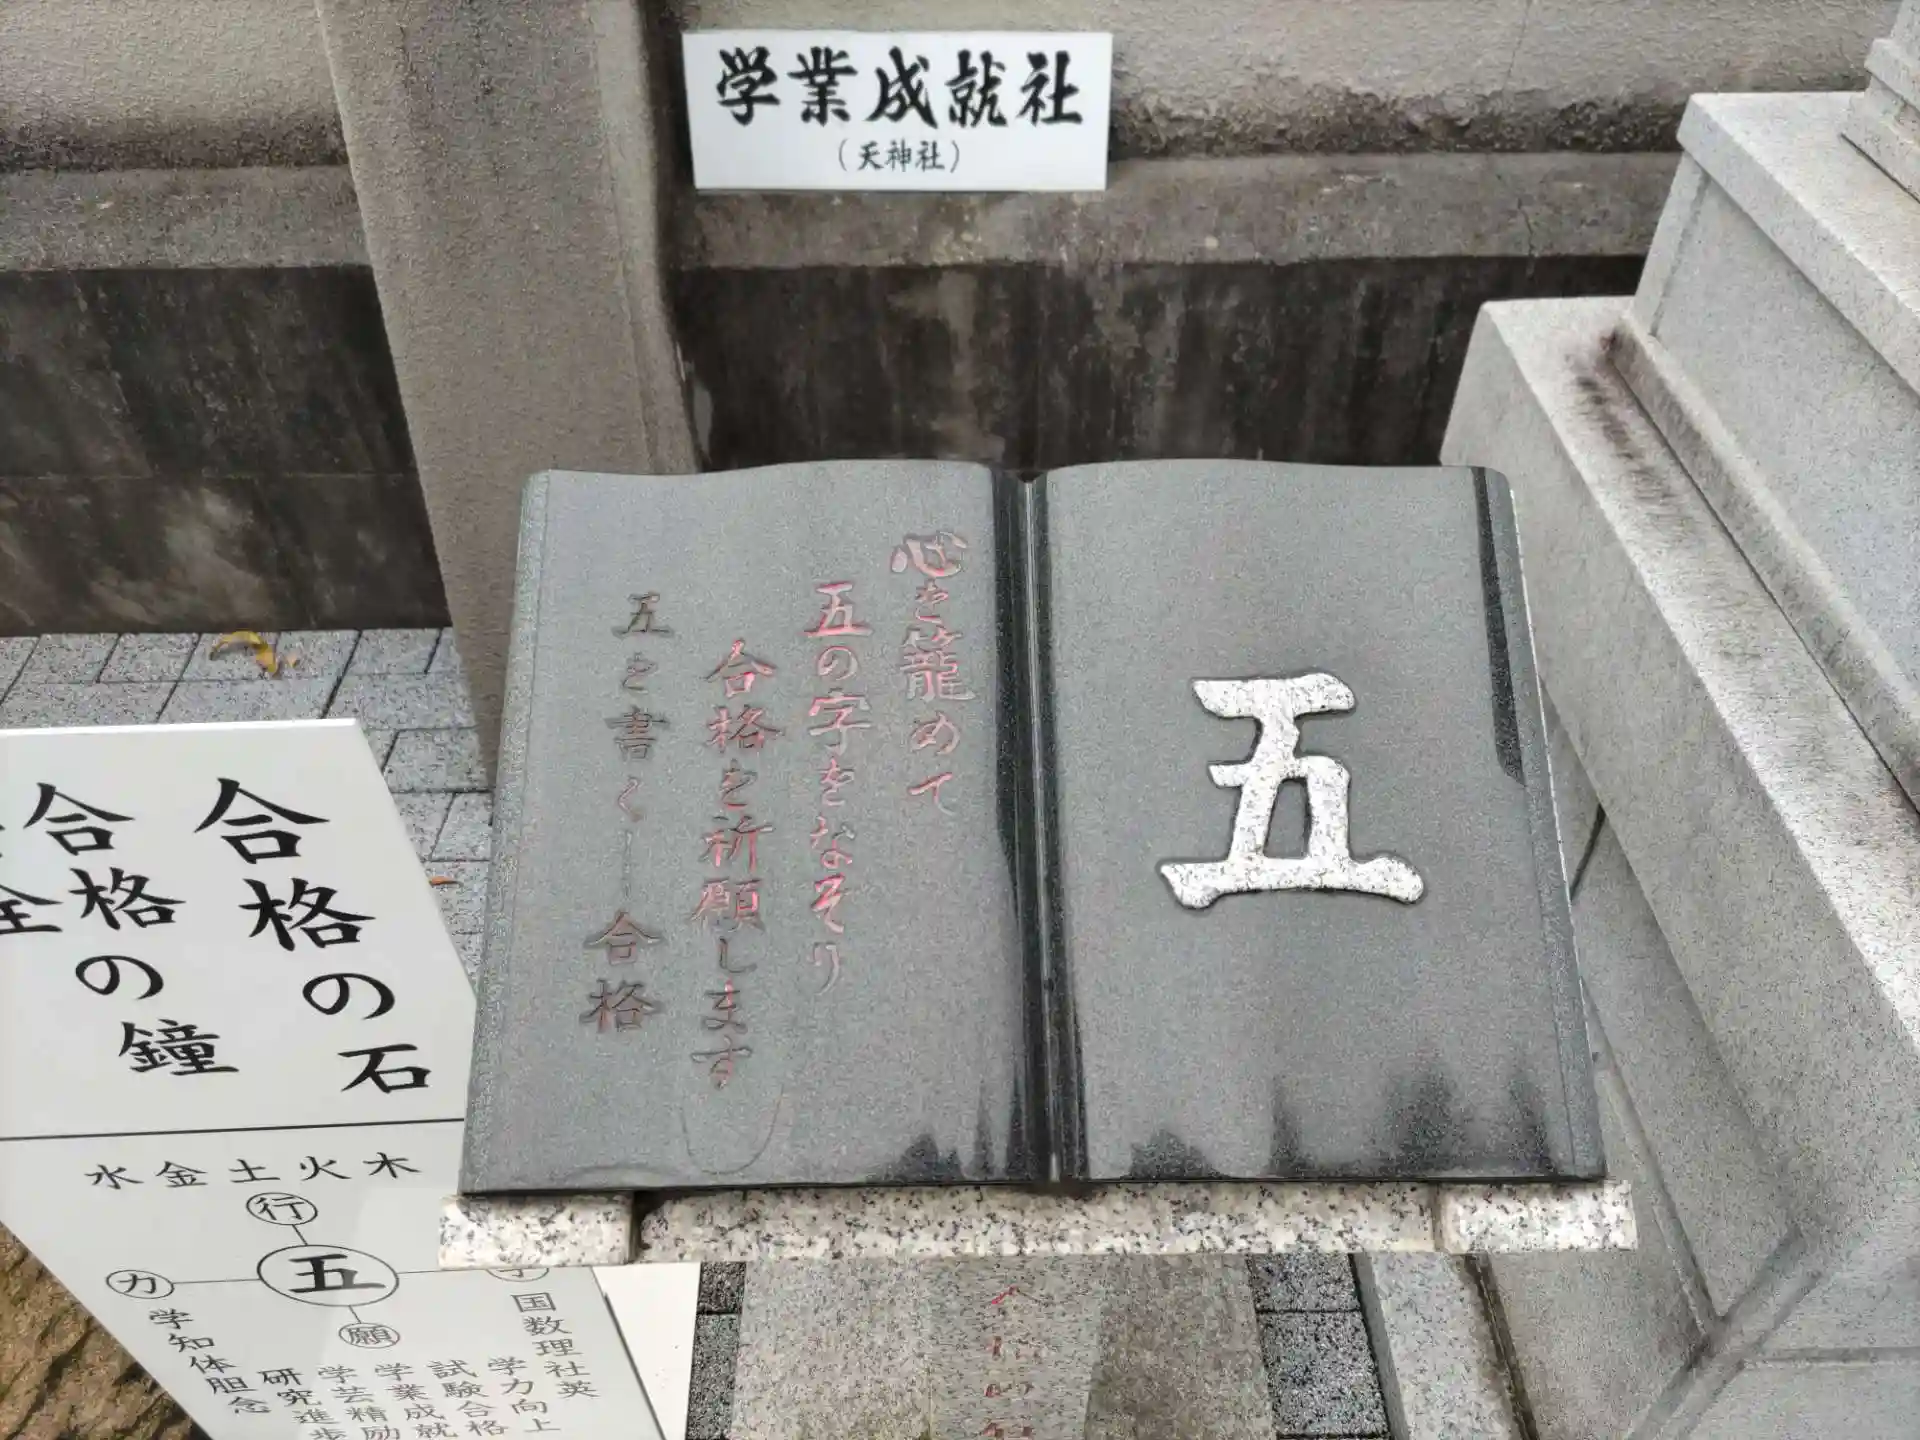 学業成就社
（天神社）
五
心を籠めて
五の字をなぞり
合格を祈願します
五と書く―合格
合格の石
合格の鐘
水金土火木
行
五
力
願
国数理社英
学力向上
試験合格
学業成就
学芸精励
研究進歩
学知体胆念